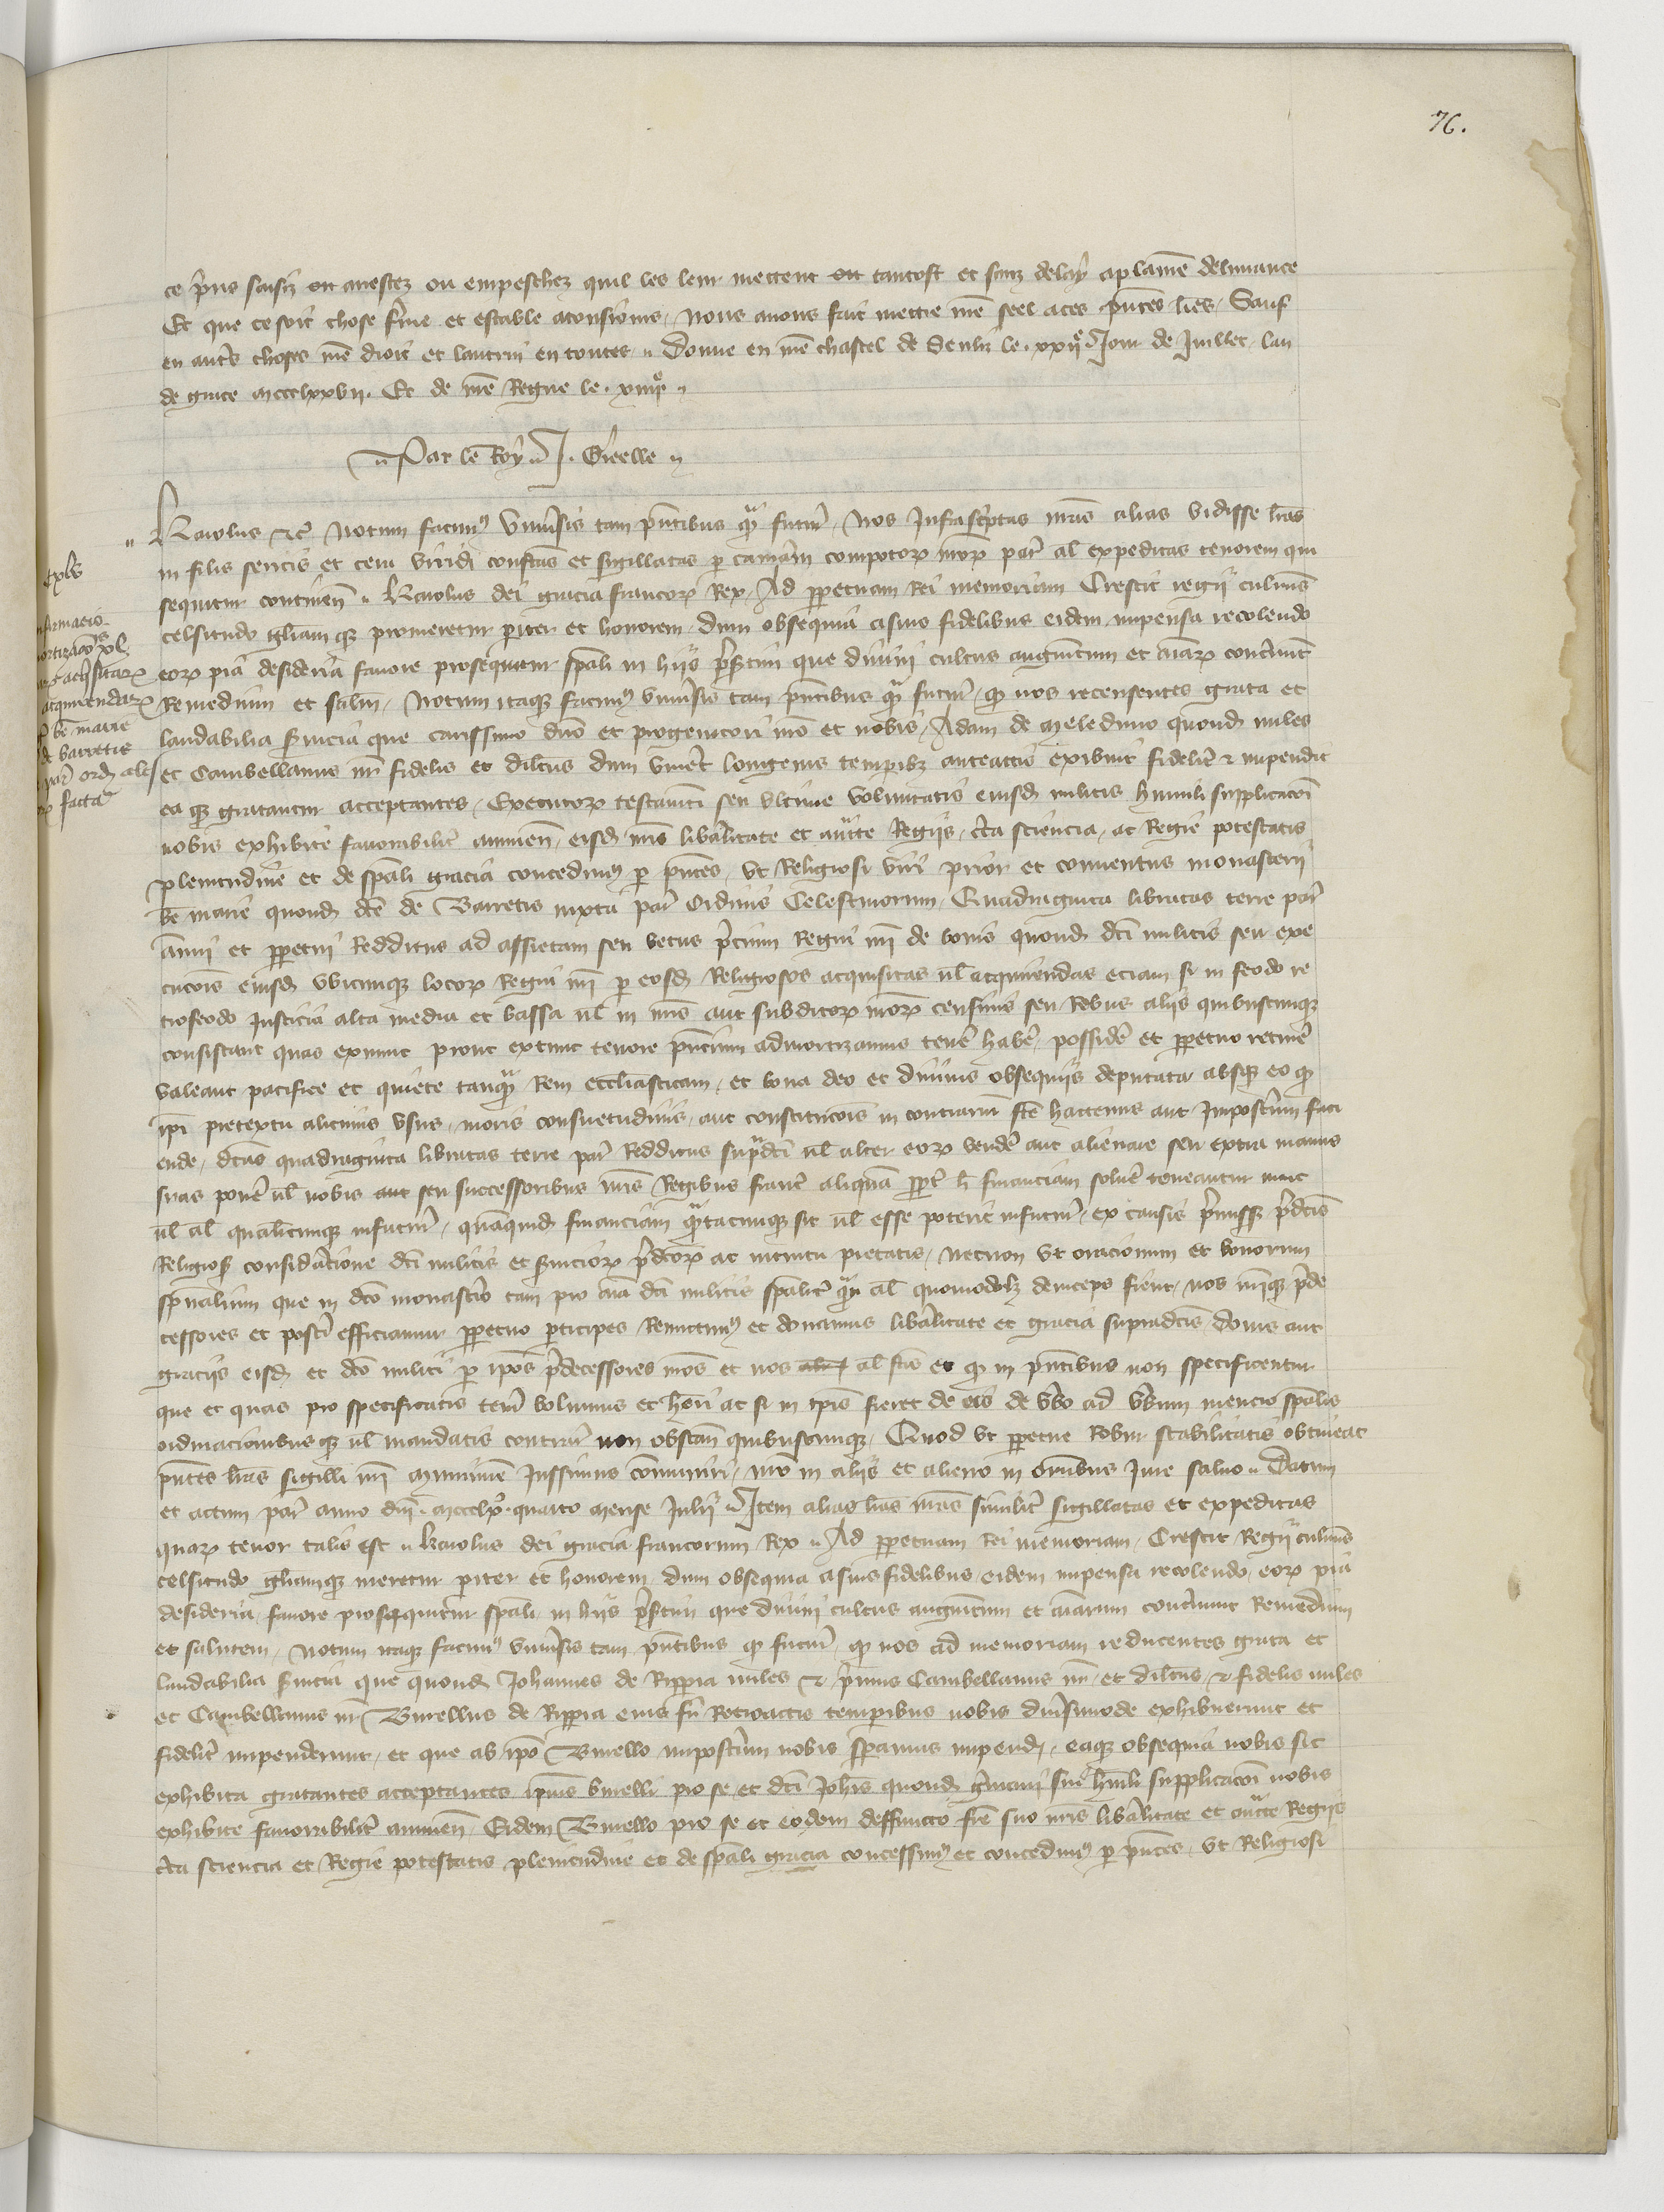 76.
ce pris saisiz ou arrestez ou empeschez quil les leur mettent ou tantost et sanz delay a plaine delivrance
Et que ce soit chose ferme et estable a tousiours, Nous avons fait mettre nre seel a ces pntes lres, Sauf
en autres choses nre droit et lautruy en toutes. Donne en nre chastel de Senliz le xxije Jour de Juillet, lan
de grace mccclxxvij. Et de nre Regne le xiiije
Par le Roy. J. Greelle
Karolus etc Notum facimus Universis tam pntibus quam futuris, Nos Infrascriptas nras alias vidisse lras
in filis sericis et cera viridi confectas et sigillatas per cameram compotorum nrorum par al expeditas tenorem qui
sequitur continen. Karolus dei gracia francorum Rex, Ad perpetuam Rei memoriam Crescit regii culminis
celsitudo gliamque promeretur pariter et honorem, dum obsequia a suis fidelibus eidem impensa recolendo
eorum pia desideria favore prosequitur spali in hiis presertim que divini cultus augmentum et aiarum concernunt
Remedium et salutem, Notum itaque facimus universis tam pntibus quam futuris, quod nos recensentes grata et
laudabilia servicia que carissimo dno et progenitori nro et nobis, Adam de Meleduno quondam miles
et Cambellanus nr fidelis et dilcus dum viveret longevis temporibus anteactis exibuit fideliter et impendit
ea que gratanter acceptantes, Executorum testamenti seu ultime voluntatis eiusdem militis humili supplicacioni
nobis exhibite favorabiliter annuen, eisdem nris liberalitate et aucte Regiis, certa sciencia, ac Regie potestatis
plenitudine et de spali gracia concedimus per pntes, ut Religiosi viri prior et conventus monasterii
be marie quondam dce de Barretis iuxta par Ordinis Celestinorum, Quadraginta libratas terre par
annui et perpetui Redditus ad assietam seu verus precium Regni nri de bonis quondam dci militis seu exe
cucionis eiusdem ubicunque locorum Regni nri per eosdem Religiosos acquisitas vel acquirendas eciam si in feodo re
trofeodo Justicia alta media et bassa vel in nris aut subditorum nrorum censivis seu Rebus aliis quibuscunque
consistant quas exnunc prout extunc tenore pntium admortizamus tenere habere, possidere et perpetuo retinere
valeant pacifice et quiete tanquam Rem ecclesiasticam, et bona deo et divinis obsequiis deputata absque eo quod
ipi pretextu alicuius usus, moris consuetudinis, aut constitucionis in contrarium fce hactenus aut Imposterum faci
ende, dcas quadraginta libratas terre par Redditus supradci vel alter eorum vendere aut alienare seu extra manus
suas ponere vel nobis aut seu successoribus nris Regibus franc aliquam propter h financiam solvere teneantur nunc
vel al qualitercunque in futurum, quamquidem financiam quantacunque sit vel esse poterit in futurum, ex causis premissis predcis
Religiosis consideracione dci militis et serviciorum predcorum ac intuitu pietatis, necnon ut oracionum et bonorum
spualium que in dco monasterio tam pro aia dci militis spaliter quam al quomodolibet deinceps fient, nos nrique prede
cessores et posteri efficiamur perpetuo participes, Remittimus et donamus liberalitate et gracia supradcis, donis aut
graciis eisdem et dco militi per ipos predecessores nros et nos al fcis et quod in pntibus non specificentur
que et quas pro specificatis teneri volumus et heri ac si in ipis fieret de eis de verbo ad verbum mencio spalis
ordinacionibusque vel mandatis contrariis non obstan quibuscunque, Quod ut perpetue Robur stabilitatis obtineat
pntes lras sigilli nri Munimine Jussimus communiri, nro in aliis et alieno in omnibus Jure salvo. Datum
et actum par anno dni mccclxo quarto mense Julii. Item alias lras nras similiter sigillatas et expeditas
quarum tenor talis est. Karolus dei gracia francorum Rex. Ad perpetuam Rei memoriam, Crescit Regii culminis
celsitudo gliamque meretur pariter et honorem, dum obsequia a suis fidelibus eidem impensa recolendo, eorum pia
desideria favore prosequitur spali in hiis presertim que divini cultus augmentum et aiarum concernunt Remedium
et salutem, Notum itaque facimus universis tam pntibus quam futuris, quod nos ad memoriam reducentes grata et
laudabilia servicia que quondam Johannes de Ripparia miles et primus Cambellanus nr, et dilcus et fidelis miles
et Cambellanus nr Burellus de Ripparia eius fr Retroactis temporibus nobis diversimode exhibuerunt et
fideliter impenderunt, et que ab ipo Burello imposterum nobis speramus impendi, eaque obsequia nobis sic
exhibita gratantes acceptantes ipius burelli pro se et dci Johis quondam germani sui humili supplicacioni nobis
exhibite favorabiliter annuen, Eidem Burello pro se et eodem deffuncto fre suo nris liberalitate et aucte Regiis
certa sciencia et Regie potestatis plenitudine et de spali gracia concessimus et concedimus per pntes, ut Religiosi